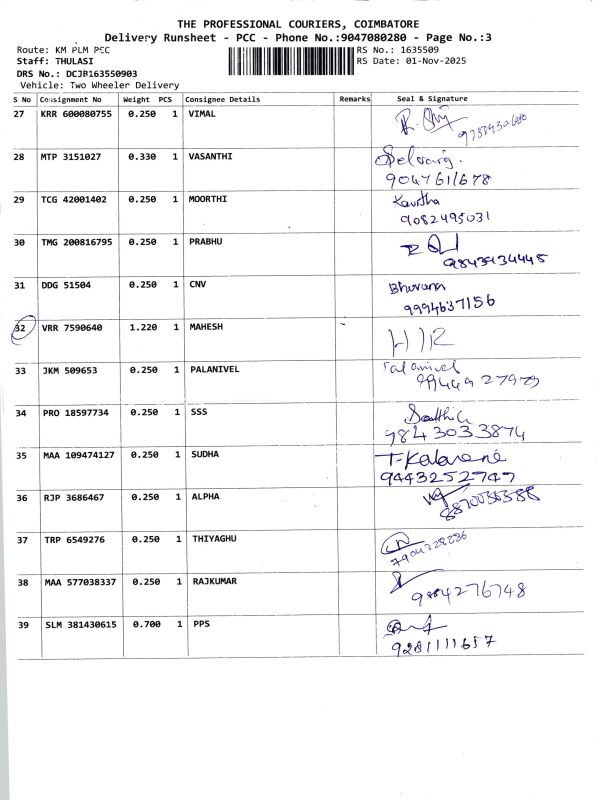 THE PROFESSIONAL COURIERS, COIMBATORE
Delivery Runsheet - PCC - Phone No.:9047080280 - Page No.:3
Route: KM PLM PCC RS No.: 1635509
Staff: THULASI RS Date: 01-Nov-2025
DRS No.: DCJB163550903
Vehicle: Two Wheeler Delivery
S No Consignment No Weight PCS Consignee Details Remarks Seal & Signature
27 KRR 600080755 0.250 1 VIMAL
28 MTP 3151027 0.330 1 VASANTHI Selvaraj.
9047611678
29 TCG 42001402 0.250 1 MOORTHI Kavitha
9082495031
30 TMG 200816795 0.250 1 PRABHU
9843934445
31 DDG 51504 0.250 1 CNV Bhuvana
9994637156
32 VRR 7590640 1.220 1 MAHESH HIR
33 JKM 509653 0.250 1 PALANIVEL Palanivel
9944927979
34 PRO 18597734 0.250 1 SSS
9843033874
35 MAA 109474127 0.250 1 SUDHA T-Kalavani
9443252747
36 RJP 3686467 0.250 1 ALPHA
37 TRP 6549276 0.250 1 THIYAGHU
38 MAA 577038337 0.250 1 RAJKUMAR
9884276748
39 SLM 381430615 0.700 1 PPS
9281111657